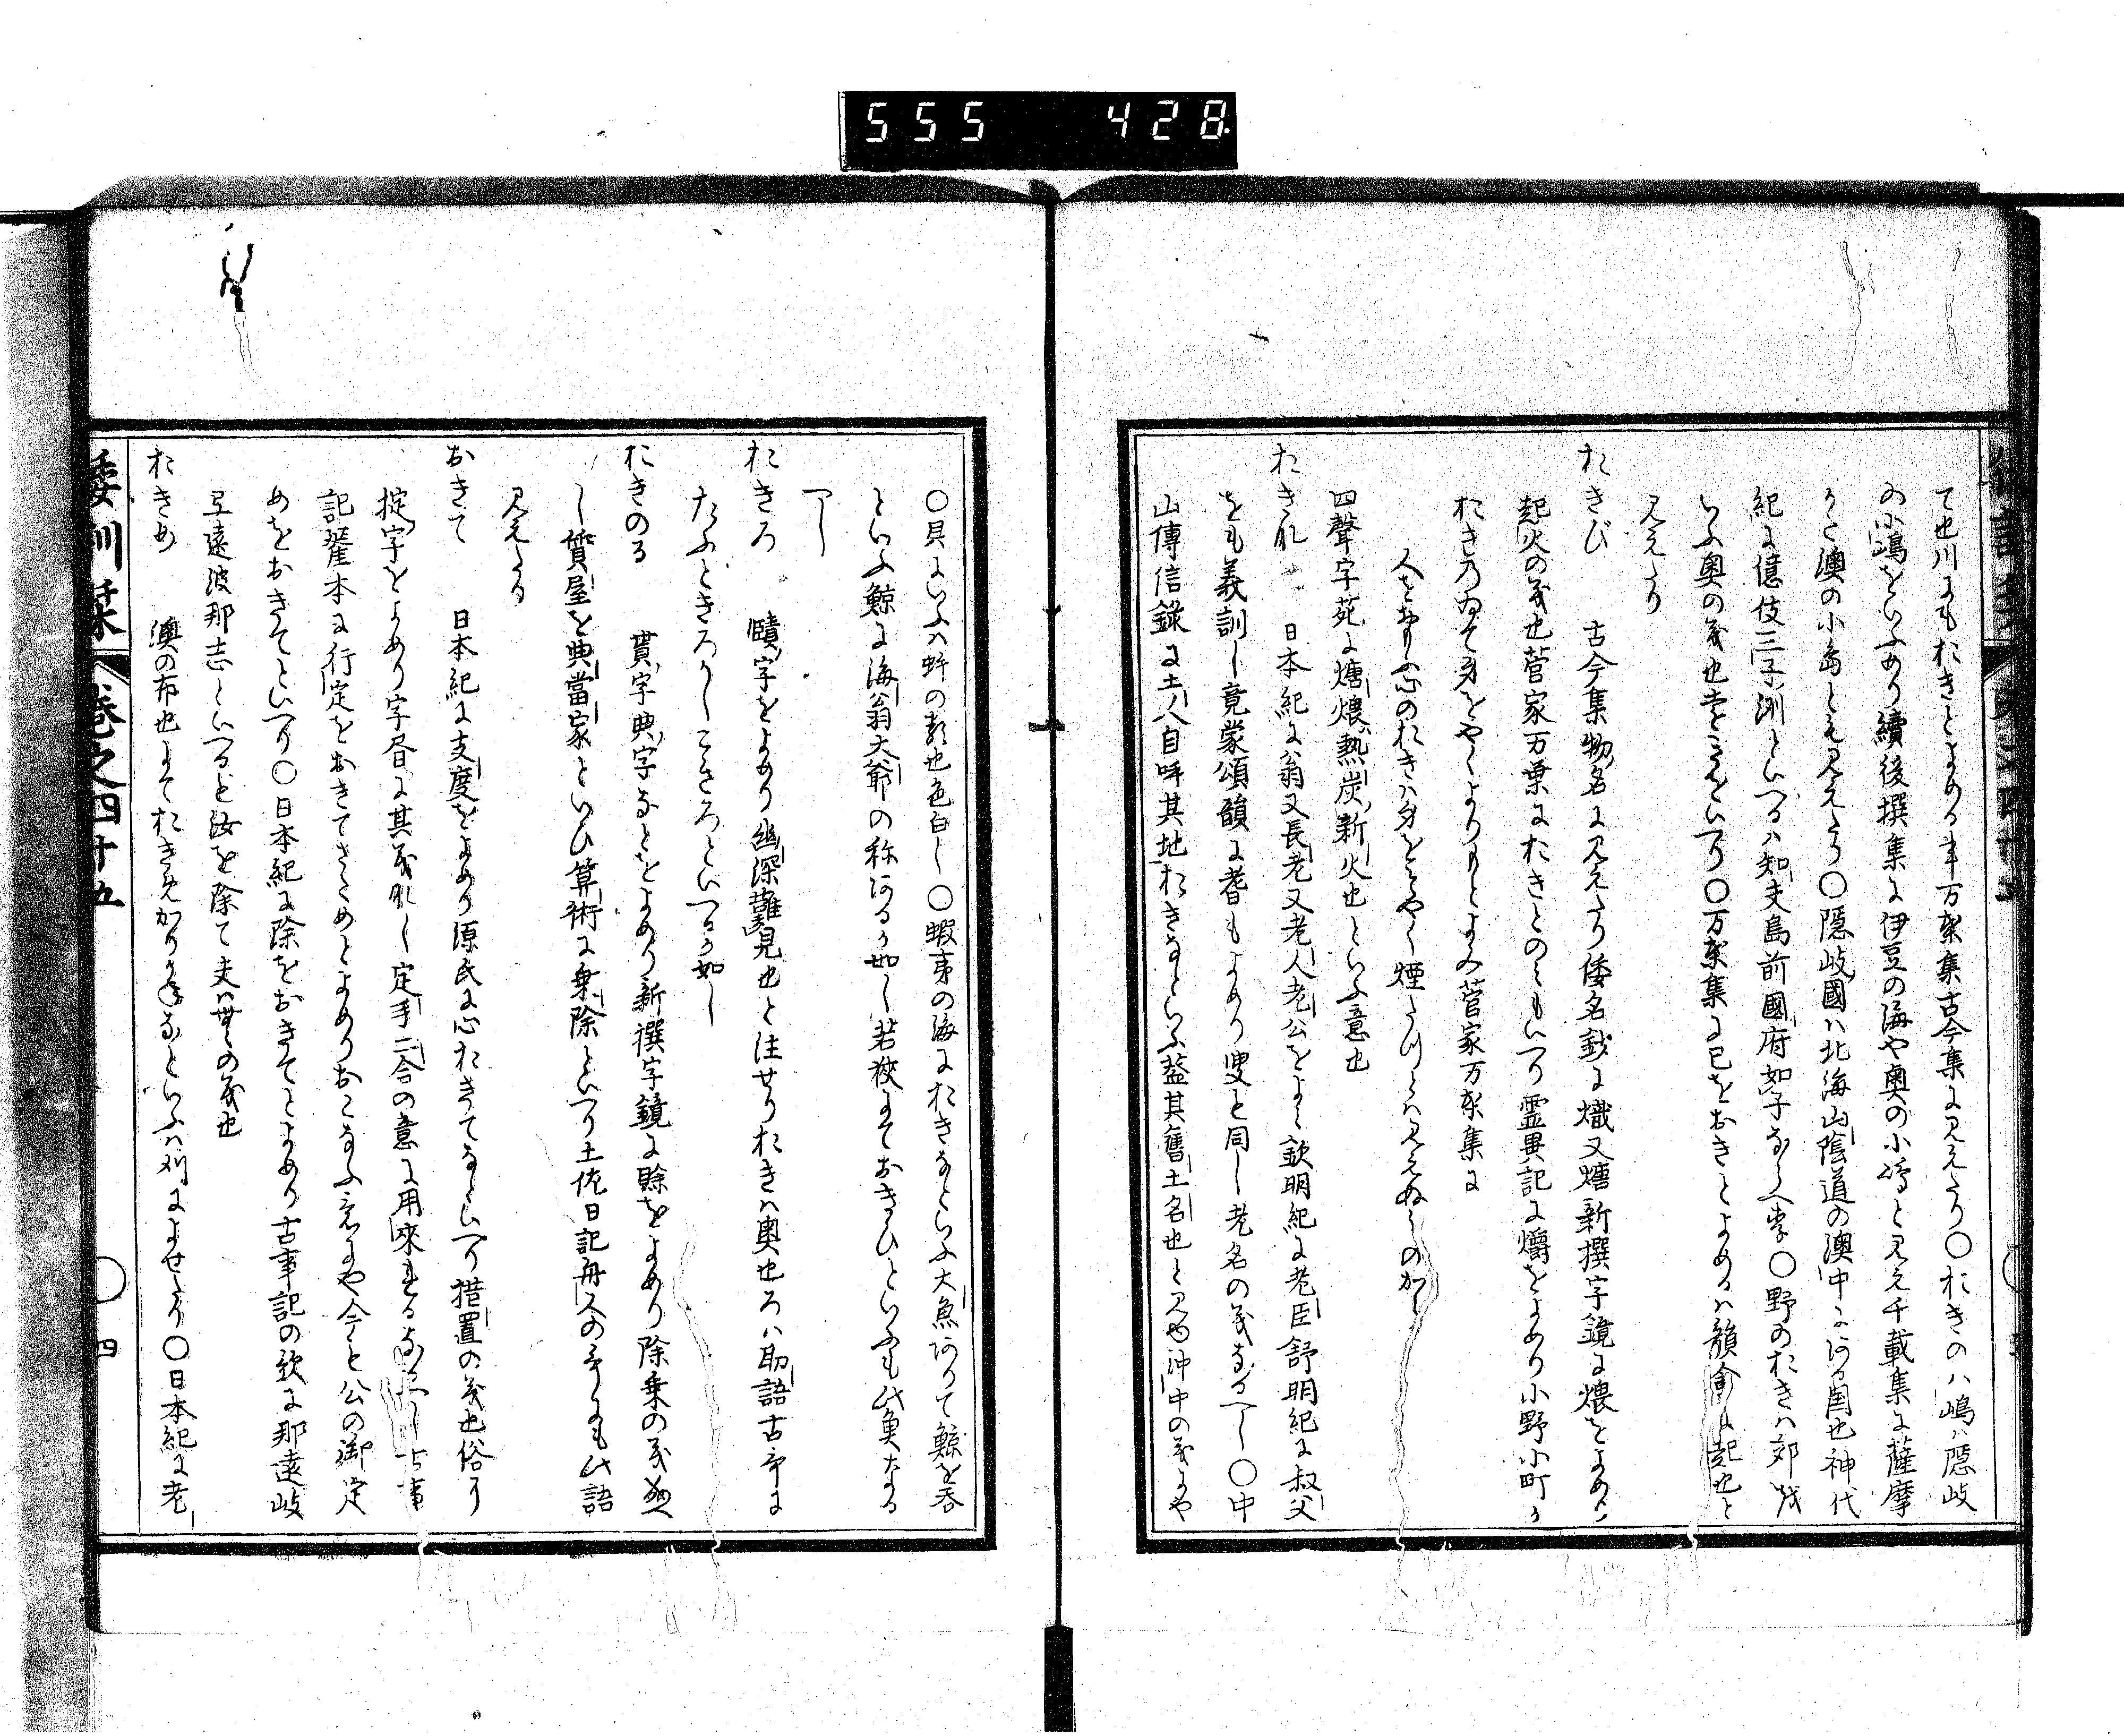 555 428
て也川にもおきとよめる事万葉集古今集に見えたり○おきのハ嶋ハ隠岐
の小嶋をいふめり續後撰集に伊豆の海や奥の小嶋と見え千載集に薩摩
かた澳の小島とも見えたり○隠岐國ハ北海山陰道の澳中にある国也神代
紀に億伎三子洲といへるハ知夫島前國府如子なるへし○野のおきハ郊せ
いふ奥の義也
見えたり
おきび 古今集物名に見えたり倭名鈔に熾又煻新撰字鏡に煨をよめり
起火の義也菅家万葉におきとのミもいへり霊異記に爝をよめり小野小町か
おきのゐて身をやくよりもとよみ菅家万葉集に
人をおもふ心のおきハ身をそやく煙たつとハ見えぬものから
四聲字苑に煻煨熱炭新火也といふ意也
おきな 日本紀に翁又長老又老人老公をよミ欽明紀に老臣舒明紀に叔父
をも義訓し竟蒙頌韻に耆もよめり叟と同し老名の義なるへし○中
山傳信錄に土人自呼其地おきなといふ蓋其舊土名也と見ゆ沖中の義にや
○貝にいふハ蚌の類也色白し○蝦夷の海におきなといふ大魚ありて鯨を呑
といふ鯨に海翁大爺の称あるか如し若狭にておきのひといふも此魚なる
へし
おきろ 賾字をよめり幽深難見也と注せりおきハ奥也ろハ助語古哥に
たふときろかしこきろといへるか如し
おきのる 貰字典字なとをよめり新撰字鏡に賖をよめり除乗の義
し質屋を典當家といひ算術に乗除といへり土佐日記舟人の哥にも此語
見えたる
おきて 日本紀に支度をよめり源氏に心おきてなといへり措置の義也俗に
掟字をよめり字書に其義なし定手二合の意に用來れるなるへし古事
記翟本に行定をおきてさためとよめりおこなふ意にや今も公の御定
めをおきてといへり○日本紀に除をおきてとよめり古事記の歌に那遠岐
弖遠波那志といへるも汝を除て夫ハ無の義也
おきめ 澳の布也よておきめかりかねなといふハ刈によせたり○日本紀に老
倭訓栞 巻之四十五 ○四